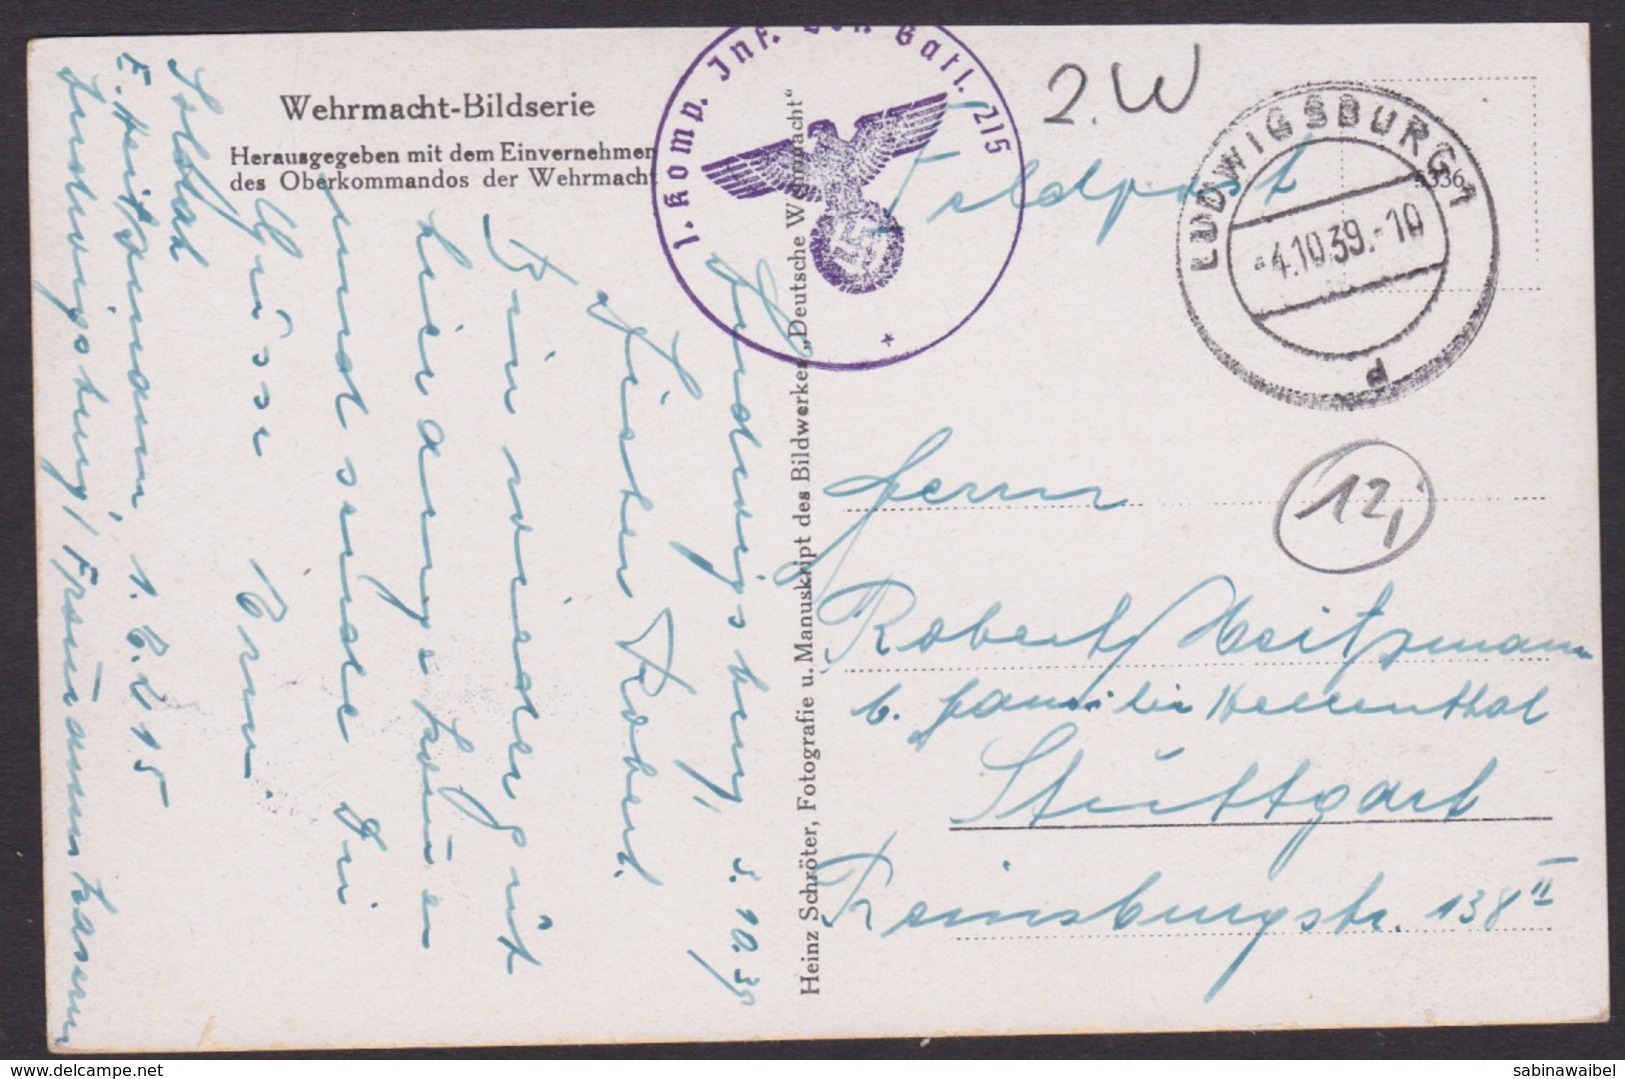 Wehrmacht-Bildserie
Herausgegeben mit dem Einvernehmen
des Oberkommandos der Wehrmacht
1. Komp. Inf. Batl. 215
2. W
Feldpost
LUDWIGSBURG 1
4.10.39.-10
d
12,
Herrn
Robert Heitzmann
b. Familie Hellenthal
Stuttgart
Reinsburgstr. 138 II
Heinz Schröter, Fotografie u. Manuskript des Bildwerkes „Deutsche Wehrmacht“
Ludwigsburg, 3.10.39
Lieber Robert.
Bin wieder gut
hier angekommen
und sende Dir
Grüsse
Soldat
E. Heitzmann, 1. E. 215
Ludwigsburg /
delcampe.net
sabinawaibel